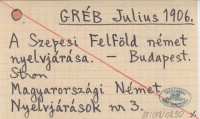 GRÉB Julius 1906.
A Szepesi Felföld német
nyelvjárása. – Budapest.
Magyarországi Német
Nyelvjárások nr 3.